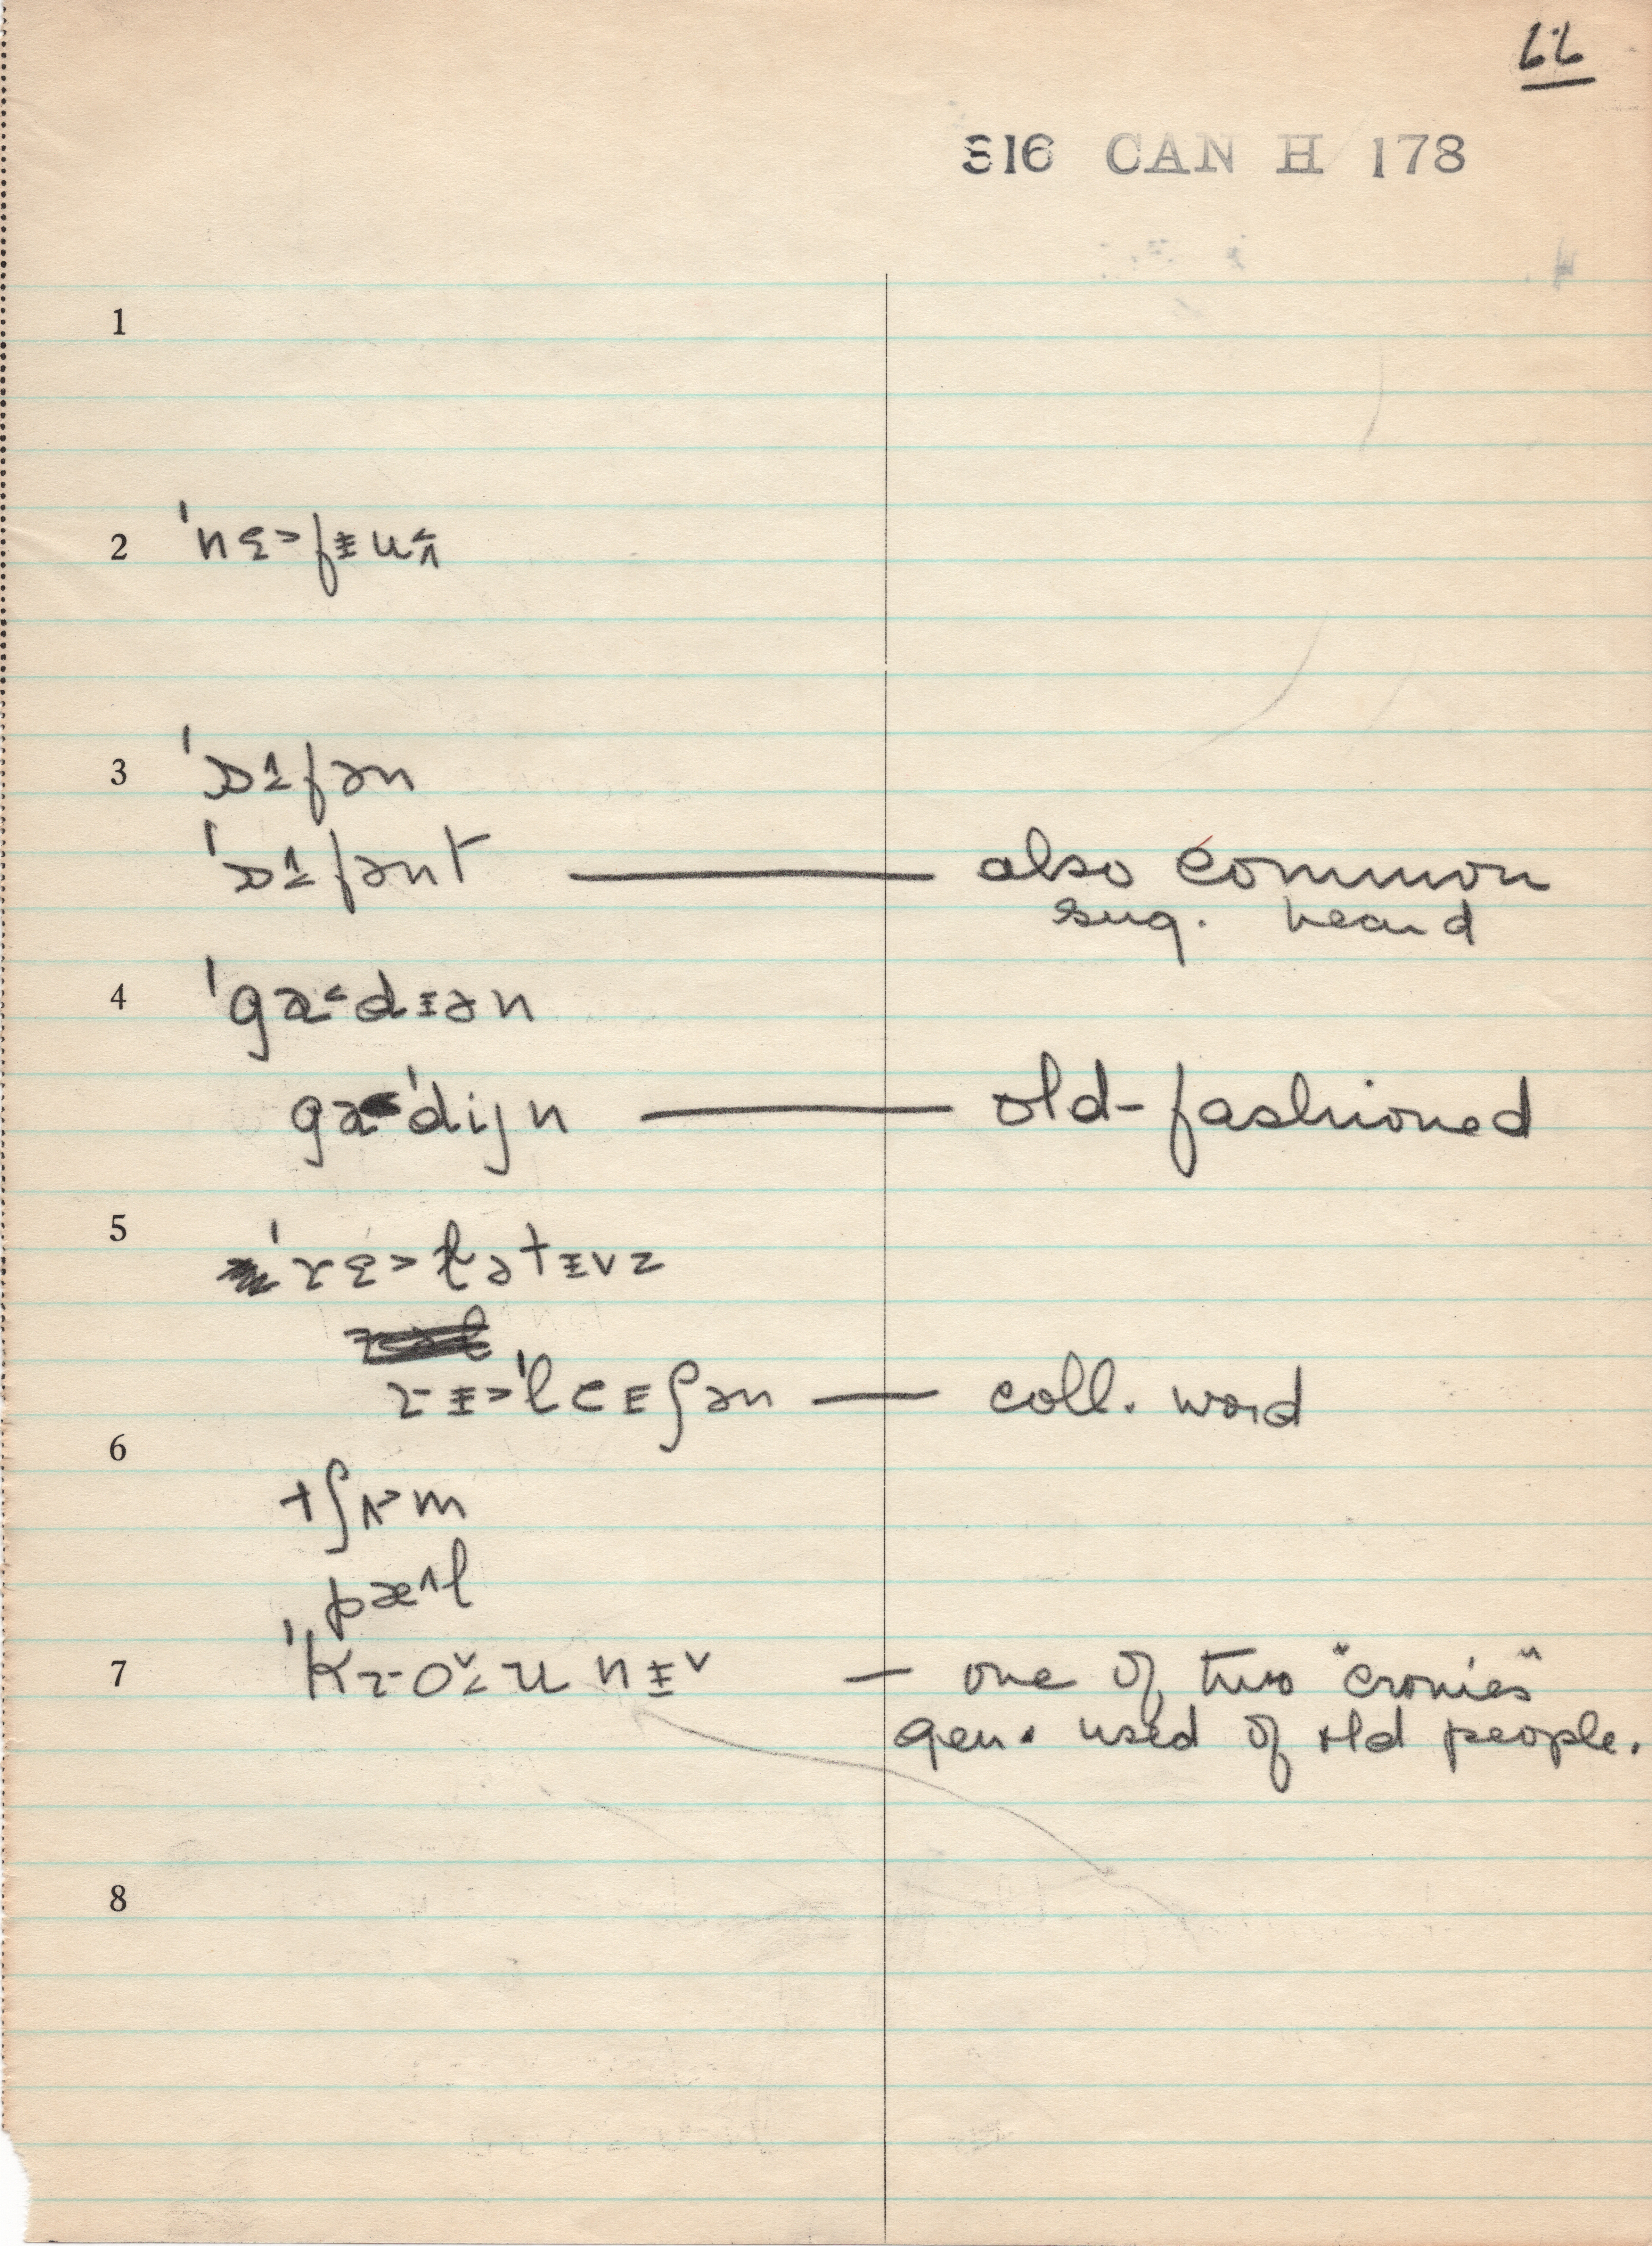 66
S16 CAN H 178
1
2 ˈnɛ˃fɪuʌ̂
3 ˈɒɪ˄fən
ˈɒɪ˄fənt — also common
sug. heard
4 ˈga˂dɪən
gaˈdijn — old-fashioned
5 ˈrɛ˃ɫətɪvz
rɪ˃ˈleɪʃən — coll. word
6
tʃʌ˃m
pæ˄l
7 ˈkroˇʊnɪˇ — one of two "cronies"
gen. used of old people.
8